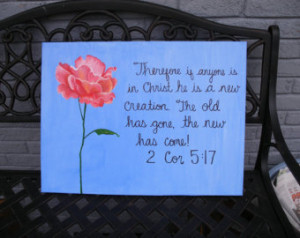 "Therefore if anyone is
in Christ he is a new
creation. The old
has gone, the new
has come!
2 Cor 5:17